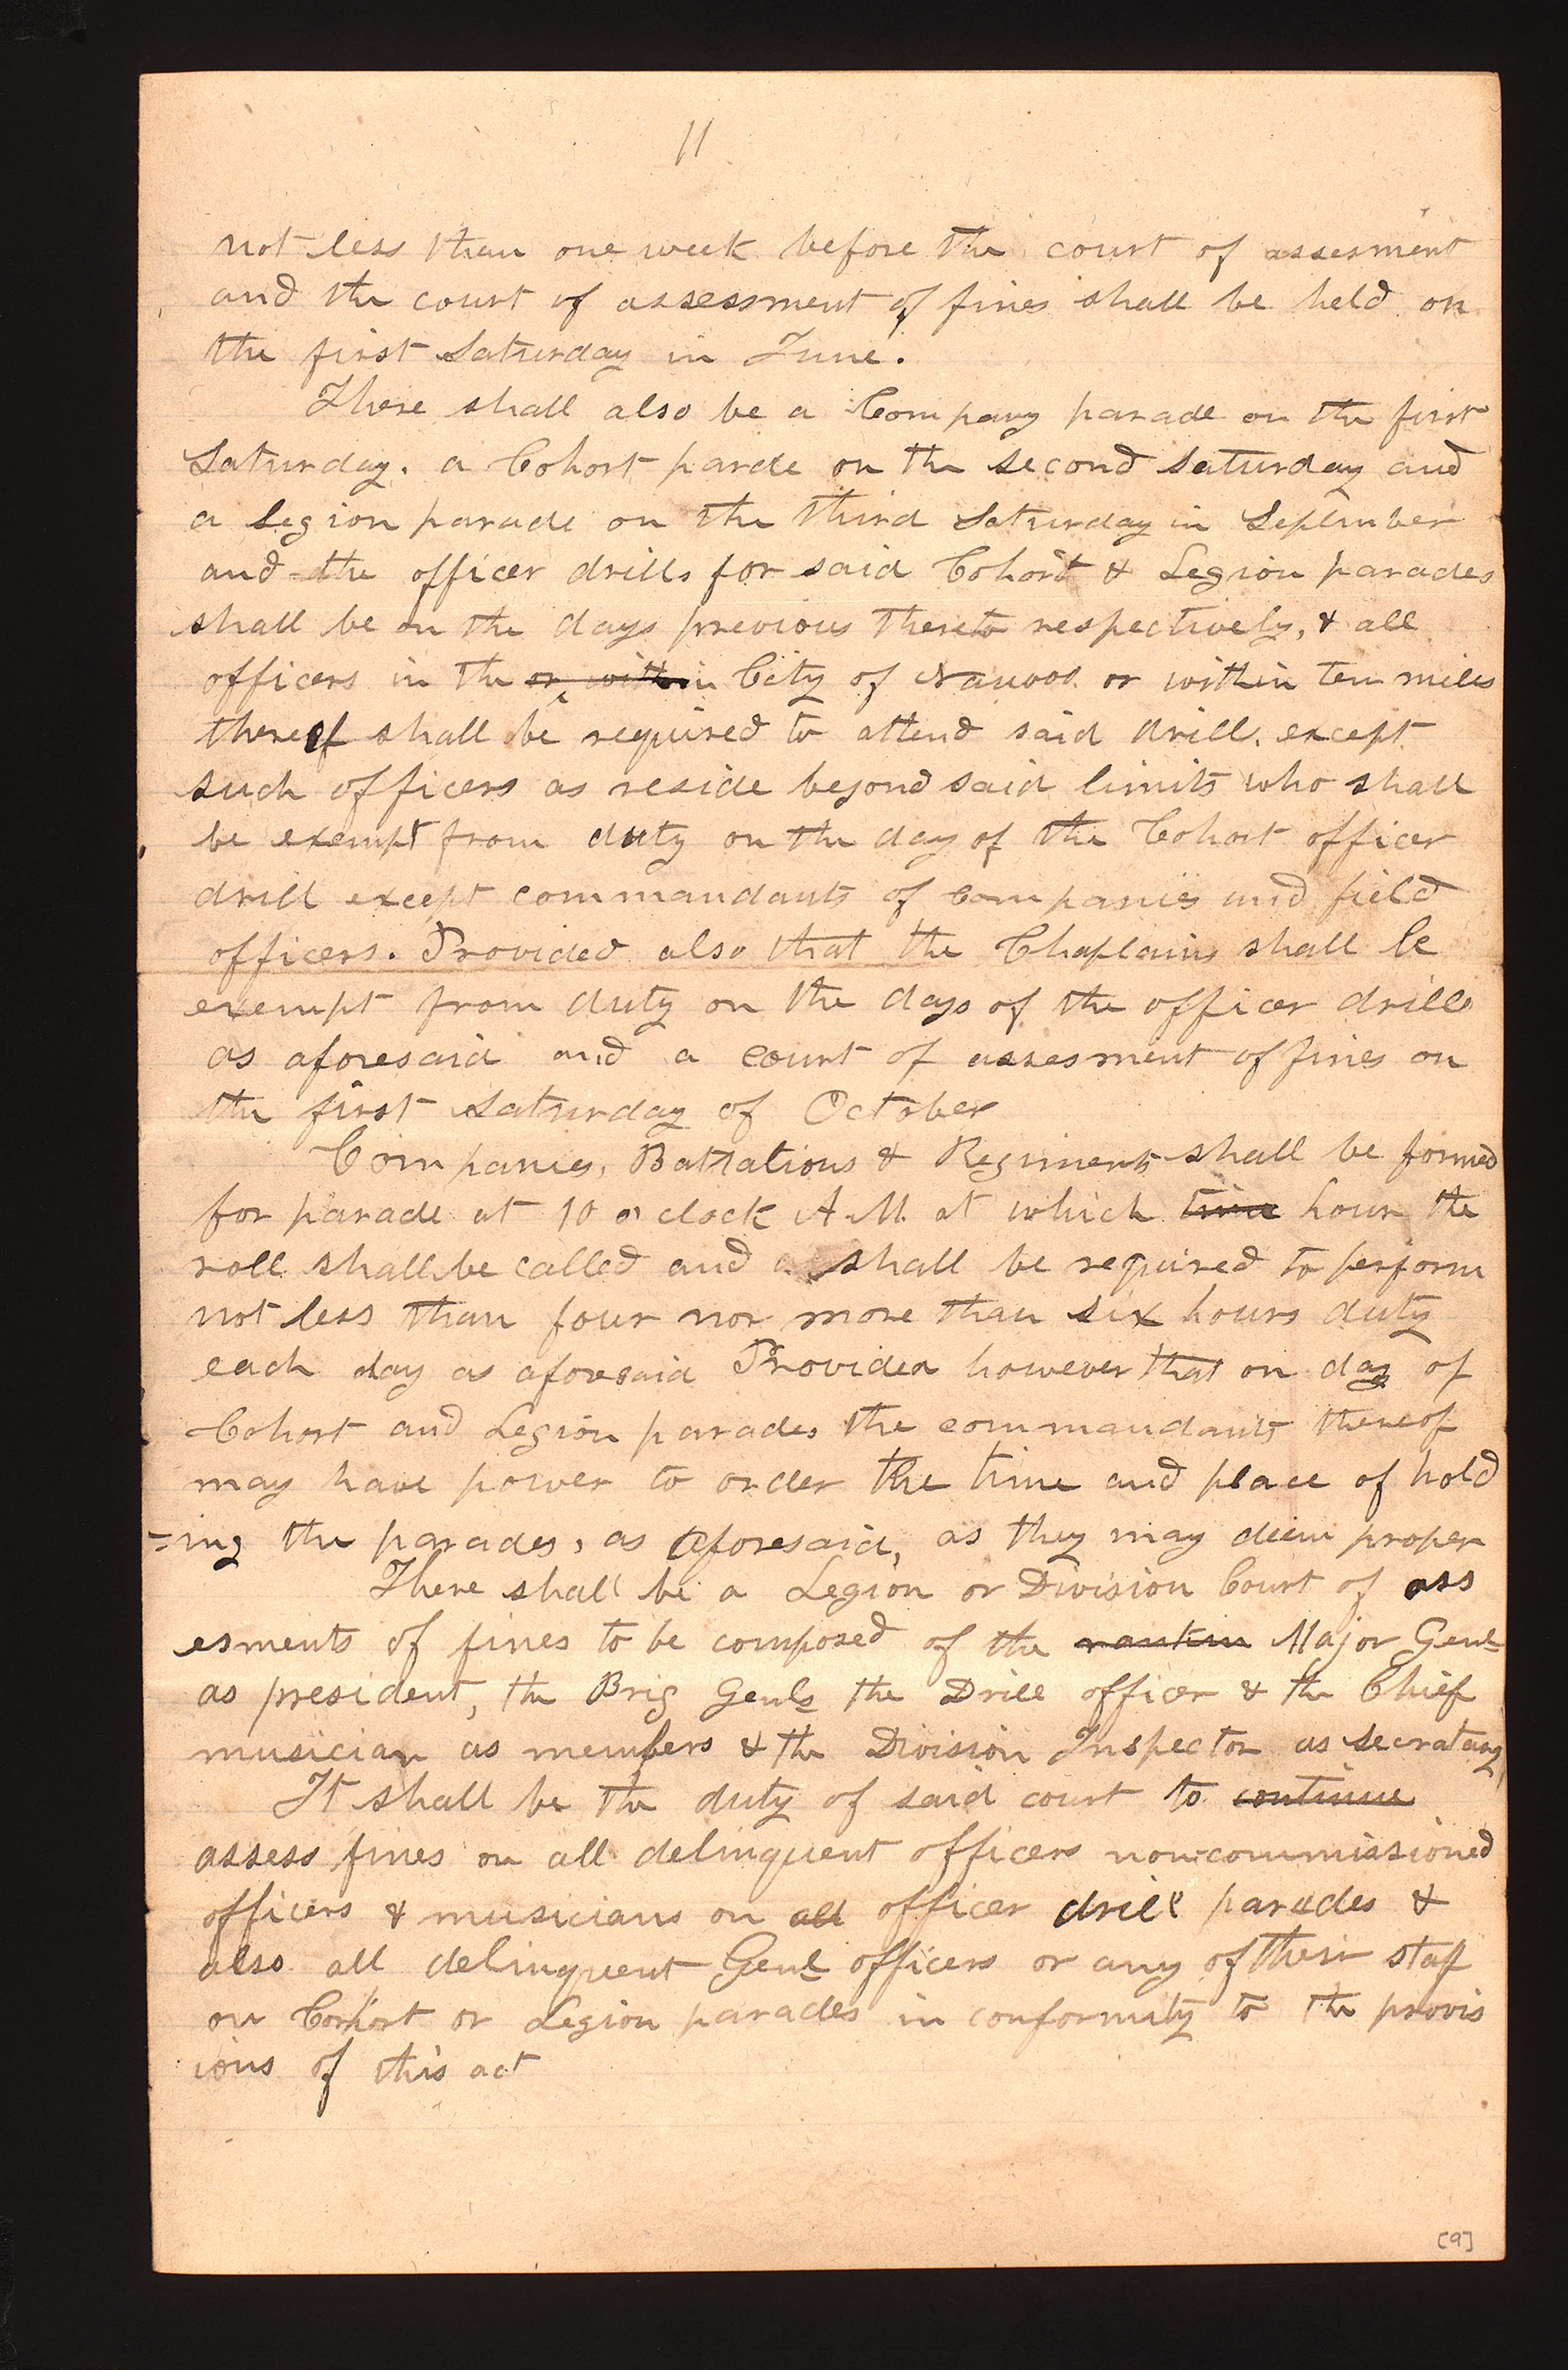 11
not less than one week before the court of assesment
and the court of assessment of fines shall be held on
the first Saturday in June.
There shall also be a Company parade on the first
Saturday. a Cohort parde on the second Saturday and
a Legion parade on the third Saturday in September
and the officer drills for said Cohort & Legion parades
shall be on the days previous thereto respectively, & all
officers in the or within City of Nauvoo or within ten miles
thereof shall be required to attend said drill. except
such officers as reside beyond said limits who shall
be exempt from duty on the day of the Cohort officer
drill except commandants of companies and field
officers. Provided also that the Chaplains shall be
exempt from duty on the days of the officer drills
as aforesaid and a court of assesment of fines on
the first Saturday of October
Companies, Battalions & Regiments shall be formed
for parade at 10 o'clock A.M. at which time hour the
roll shall be called and shall be required to perform
not less than four nor more than six hours duty
each day as aforesaid Provided however that on day of
Cohort and Legion parades the commandants thereof
may have power to order the time and place of hold
=ing the parades, as aforesaid, as they may deem proper
There shall be a Legion or Division Court of ass
esments of fines to be composed of the rankin Major Genl
as president, the Brig Genls the Drill officer & the Chief
musician as members & the Division Inspector as secratary
It shall be the duty of said court to continue
assess fines on all delinquent officers non-commissioned
officers & musicians on all officer drill parades &
also all delinquent Genl officers or any of their staff
on Corhort or Legion parades in conformity to the provis
ions of this act
[9]